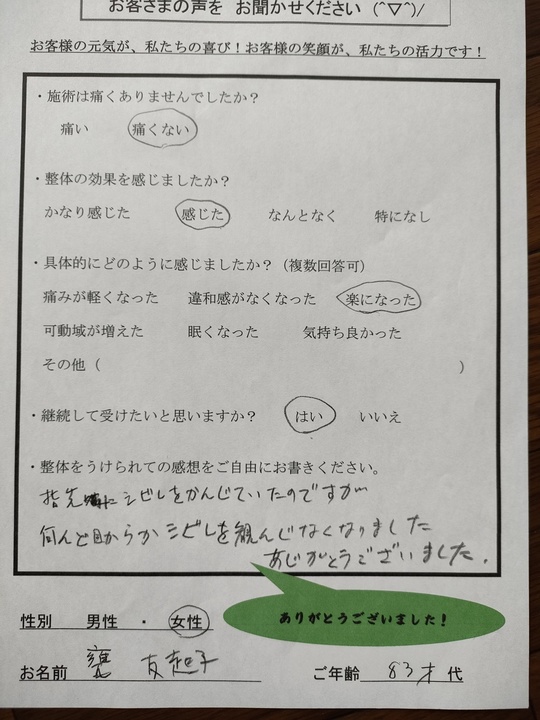 お客さまの声を お聞かせください (^▽^)/
お客様の元気が、私たちの喜び！お客様の笑顔が、私たちの活力です！
・施術は痛くありませんでしたか？
痛い 痛くない
・整体の効果を感じましたか？
かなり感じた 感じた なんとなく 特になし
・具体的にどのように感じましたか？（複数回答可）
痛みが軽くなった 違和感がなくなった 楽になった
可動域が増えた 眠くなった 気持ち良かった
その他（ ）
・継続して受けたいと思いますか？ はい いいえ
・整体をうけられての感想をご自由にお書きください。
指先にシビレをかんじていたのですが
何んど目からかシビレを観んじなくなりました
ありがとうございました。
ありがとうございました！
性別 男性 ・ 女性
お名前 友起子
ご年齢 83才 代